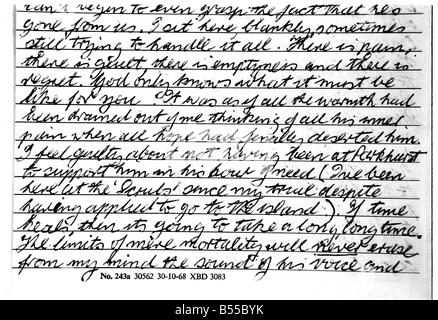 can't begin to even grasp the fact that he's
gone from us. I sit here, blankly, sometimes
still trying to handle it all. There is pain,
there is guilt, there is emptyness and there is
regret. God only knows what it must be
like for you. It was as if all the warmth had
been drained out of me thinking of all his inner
pain when all hope had finally deserted him.
I feel guilty about not having been at Parkhurst
to support him in his hour of need (I've been
here at the 'Scrubs' since my trial despite
having applied to go to the island). If time
heals, then its going to take a long, long time.
The limits of mere mortality will never erase
from my mind the sound of his voice and
No. 243a 30562 30-10-68 XBD 3083
alamy
B55BYK